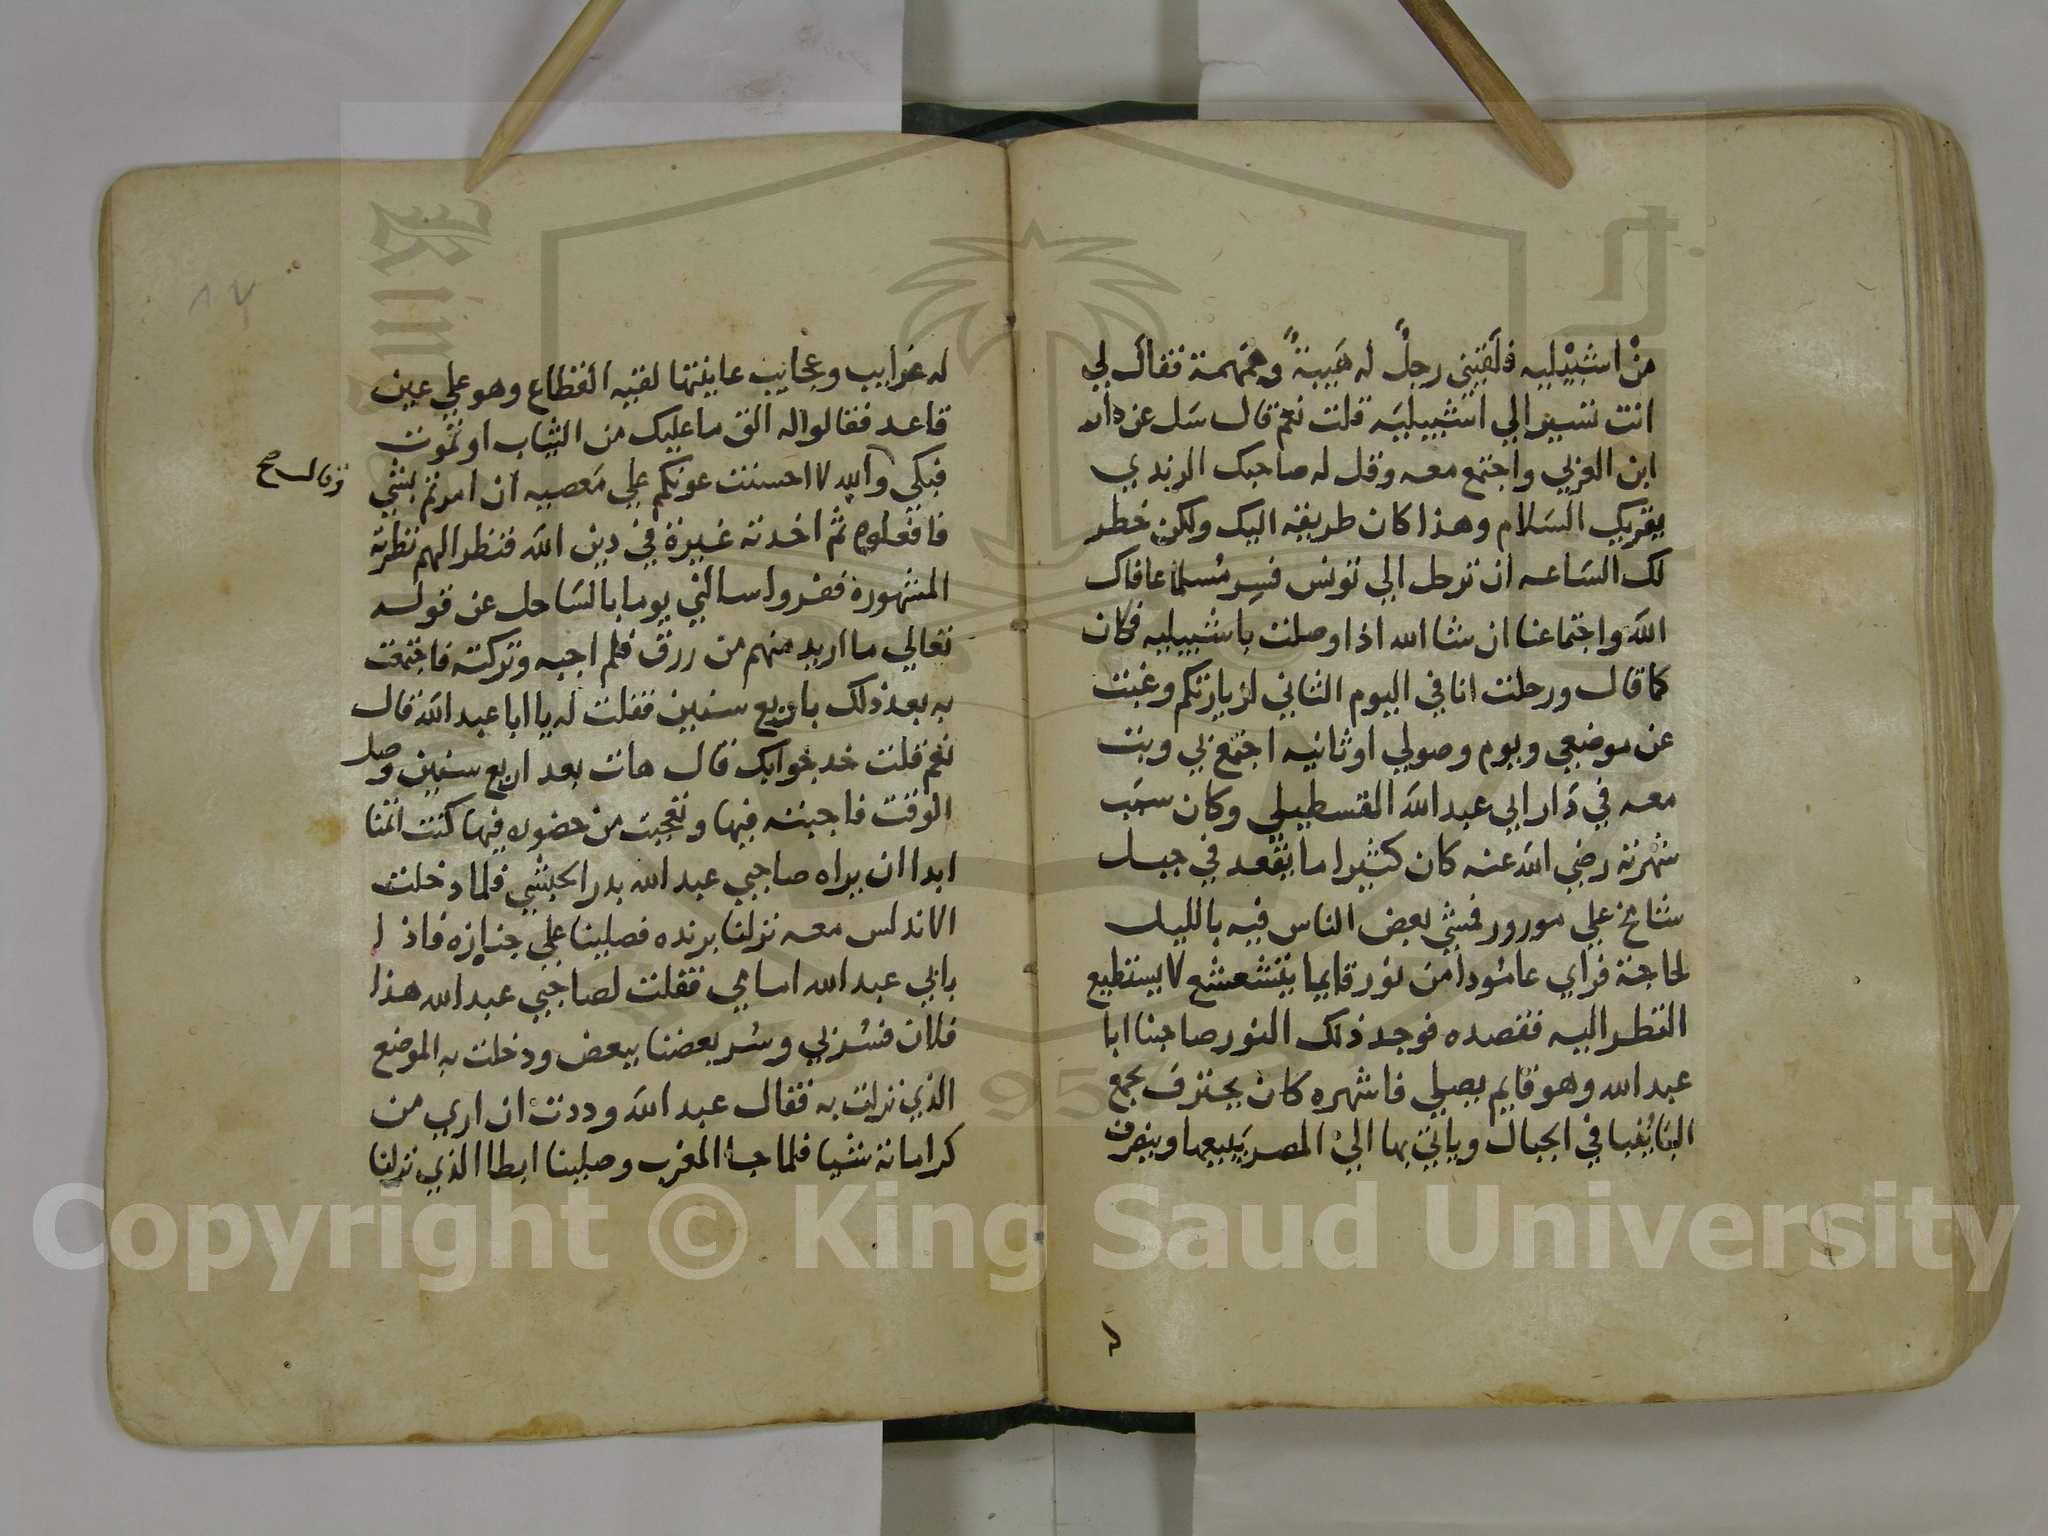 من اشبيليه فلقيني رجل له هيبة وهمهمة فقال لي
انت تسير الي اشبيلية قلت نعم قال سل عن دار
ابن العربي واجتمع معه وقل له صاحبك الرندي
يقريك السلام وهذا كان طريقه اليك ولكن خطر
لك الساعه ان ترحل الي تونس فسر مسلما عافاك
الله واجتماعنا ان شا الله اذا وصلت باشبيليه فكان
كما قال ورحلت انا في اليوم الثاني لزيارتكم وغبت
عن موضعي ويوم وصولي او ثانيه اجتمع بي وبت
معه في دار ابي عبد الله القسطيلي وكان سبب
شهرته رضي الله عنه كان كثيرا ما يقعد في جبل
شامخ علي مورور فمشي بعض الناس فيه بالليل
لحاجة فراي عامودا من نور قايما يتشعشع لا يستطيع
النظر اليه فقصده فوجد ذلك النور صاحبنا ابا
عبد الله وهو قايم يصلي فاشهره كان يحترف بجمع
البابونفيا في الجبال وياتي بها الي المصر يبيعها وينصرف
له غرايب وعجايب عاينتها لقيه القطاع وهو علي عين
قاعد فقالوا له الق ما عليك من الثياب او تموت
فبكي والله لا احسنت عونكم علي معصيه ان امرتم بشي
وقال صح
فافعلوه ثم اخدته غيرة في دين الله فنظر اليهم نظرته
المشهورة ففروا سالني يوما بالساحل عن قوله
تعالي ما اريد منهم من رزق فلم اجبه وتركته فاجتمعت
به بعد ذلك باربع سنين فقلت له يا ابا عبد الله قال
نعم قلت خد جوابك قال هات بعد اربع سنين وصل
الوقت فاجبته فيها وتعجبت من حضوره فيها كنت اتمنا
ابدا ان يراه صاحبي عبد الله بدر الحبشي فلما دخلت
الاندلس معه نزلنا برنده فصلينا علي جنازه فاذا
بابي عبد الله امامي فقلت لصاحبي عبد الله هذا
فلان فسر بي وسر بعضنا ببعض ودخلت به الموضع
الذي نزلت به فقال عبد الله وددت ان اري من
كراماته شيا فلما جا المغرب وصلينا ابطا الذي نزلنا
٨٧
Copyright © King Saud University